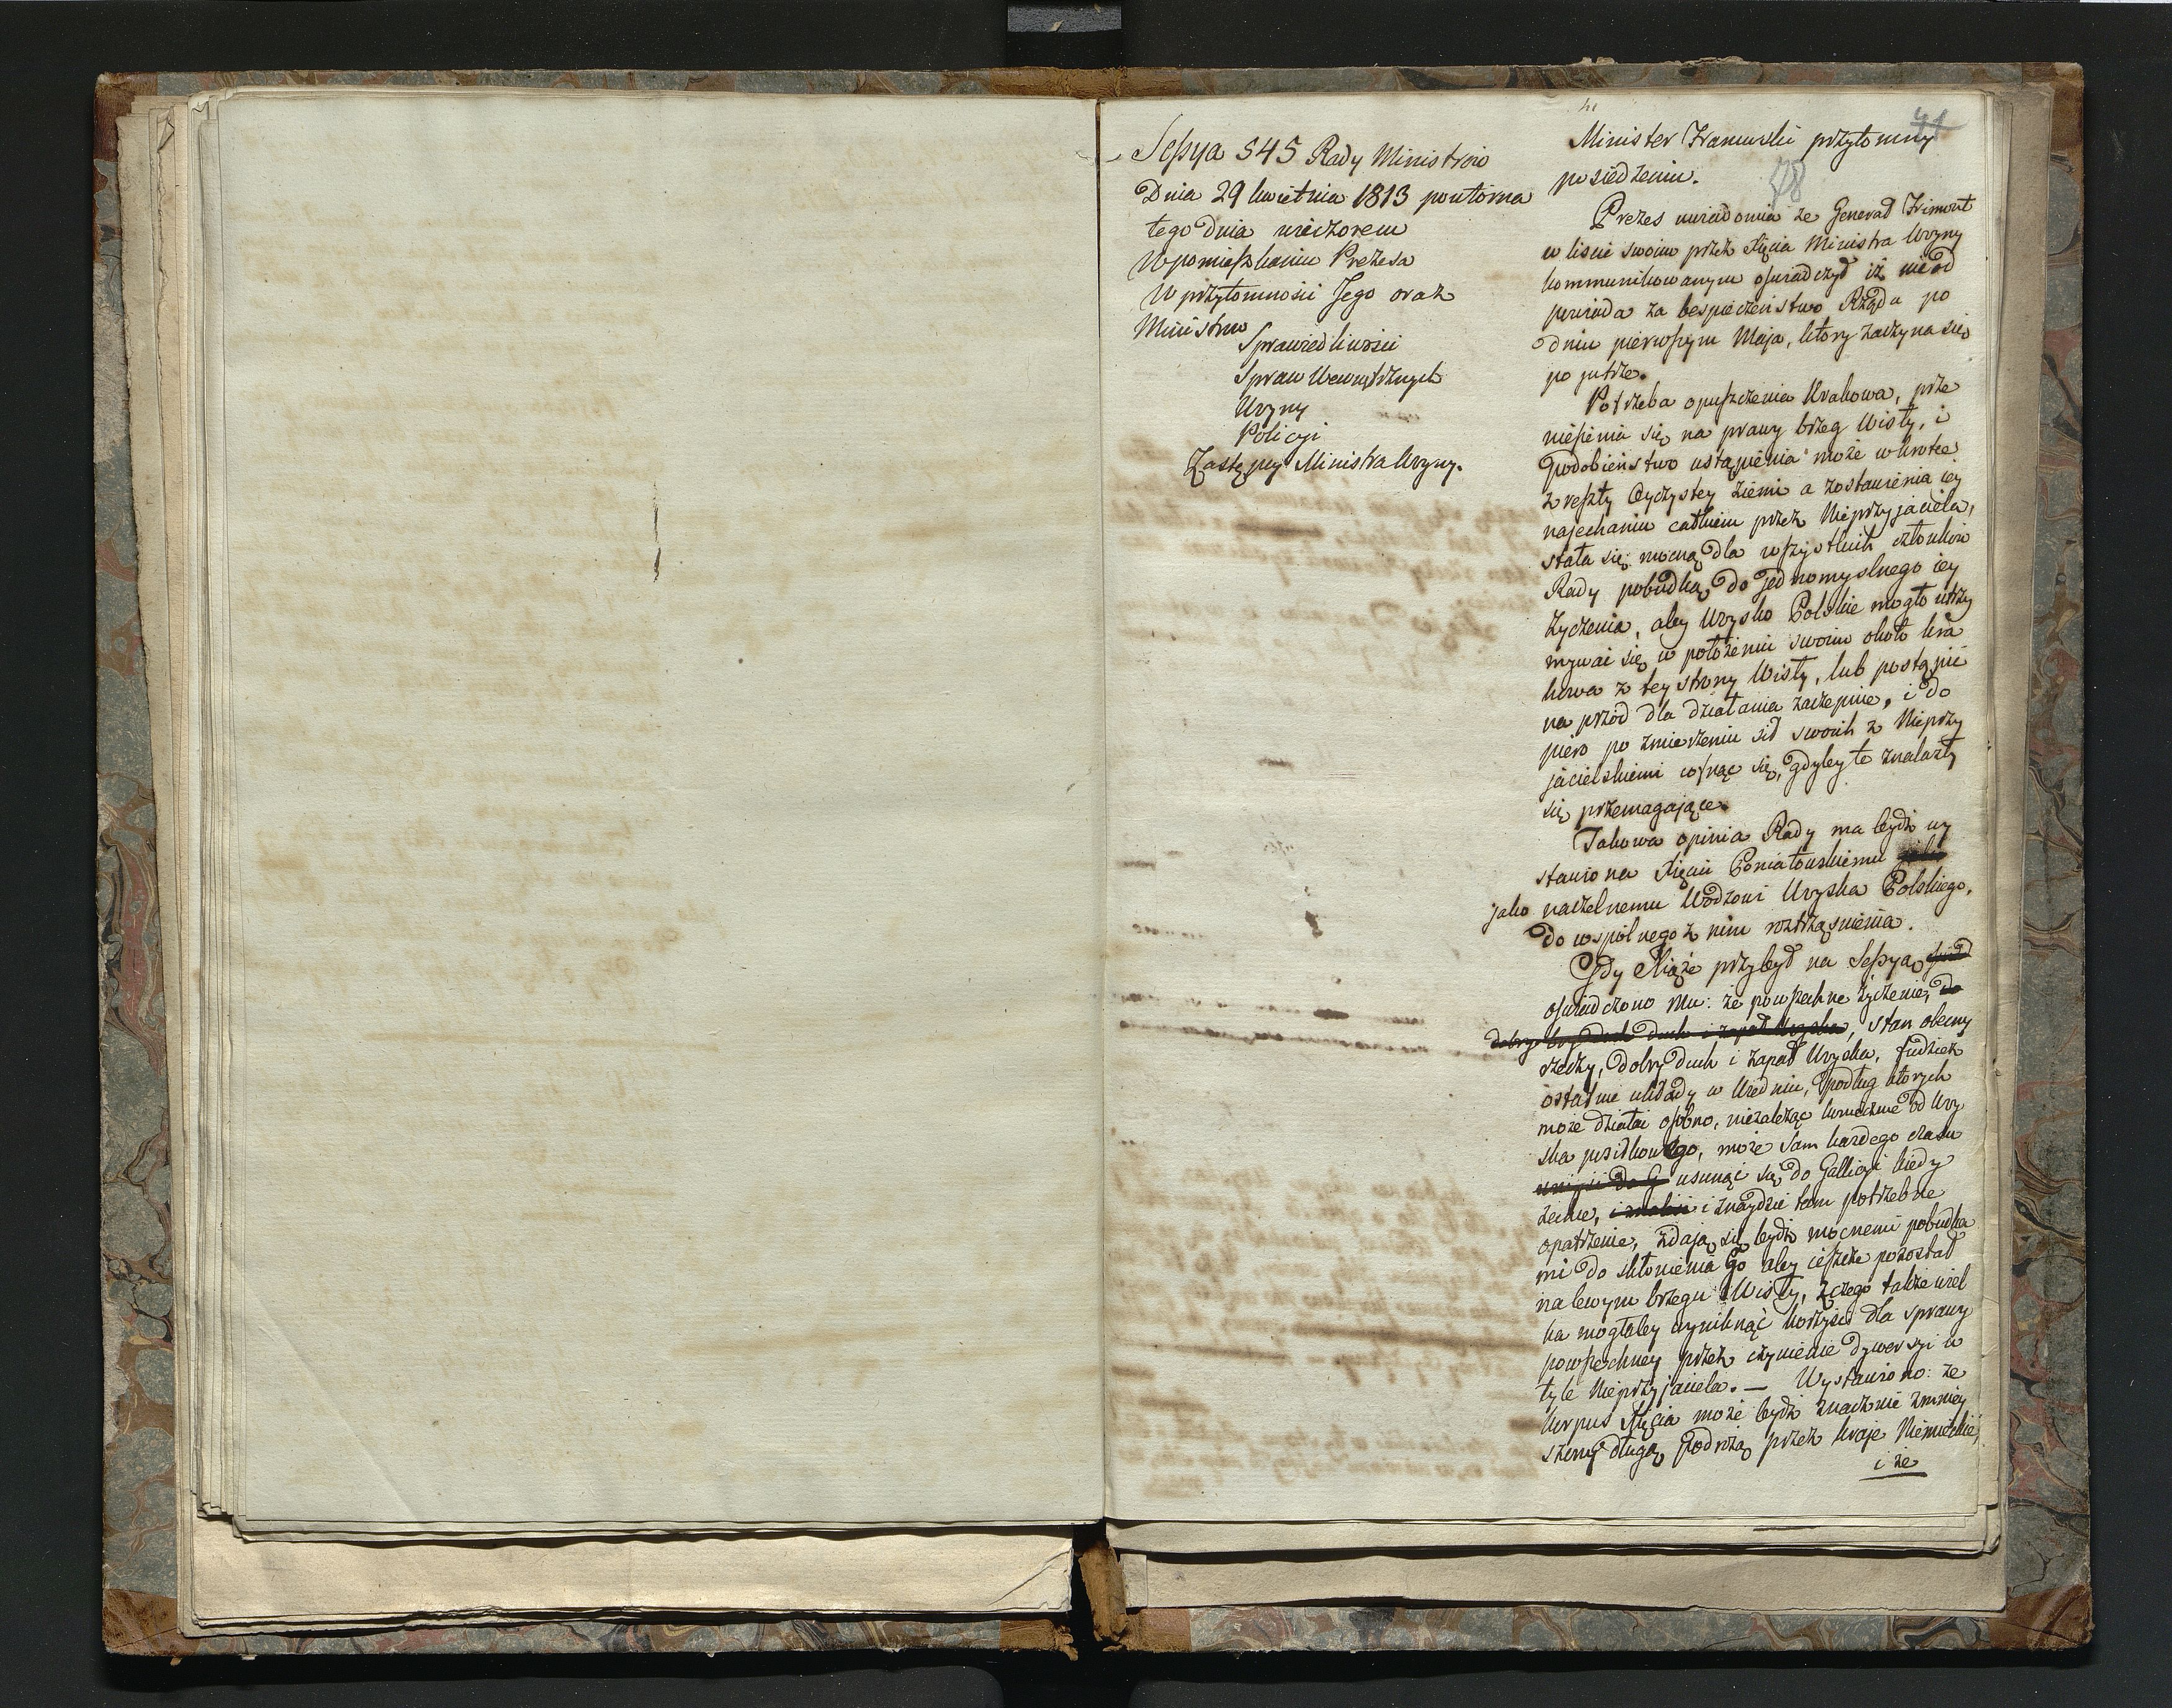 Sessya 545 Rady Ministrow
Dnia 29 kwietnia 1813 powtorna
tego dnia wieczorem
W pomieszkaniu Prezesa
W przytomności Jego oraz
Ministrow
Sprawiedliwości
Spraw Wewnętrznych
Woyny
Policyi
Zastępcy Ministra Woyny.
41
78
Minister przytomny
posiedzeniu.
Prezes uwiadomia że Generał Frimont
w liście swoim przez Xięcia Ministra Woyny
kommunikowanym oświadczył iż nie od
powiada za bespieczeństwo Rządu po
dniu pierwszym Maja, ktory zaczyna się
po jutrze.
Potrzeba opuszczenia Krakowa, prze
niesienia się na prawy brzeg Wisły, i
podobieństwo ustąpienia może wkrotce
z reszty Oyczystey ziemi a zostawienia iey
najechaniu całkiem przez Nieprzyjaciela,
stała się mocną dla wszystkich członków
Rady pobudką do jednomyslnego iey
życzenia, aby Woysko Polskie mogło utrzy
mywać się w położeniu swoim około Kra
kowa z tey strony Wisły, lub postąpić
na przód dla działania zaczepnie, i do
piero po zmierzeniu sił swoich z Nieprzy
jacielskiemi cofnąć się, gdyby te znalazły
się przemagające.
Takowa opinia Rady ma bydź wy
stawiona Xięciu Poniatowskiemu
jako naczelnemu Wodzowi Woyska Polskiego,
do wspólnego z nim roztrząśnienia.
Gdy Xiąże przybył na Sessyą
oświadczono Mu: że powszechne życzenie, do
dobry duch i zapał Woyska, stan obecny
rzeczy, dobry duch i zapał Woyska, tudzież
ostatnie układy w Wiedniu, podług ktorych
może działać osobno, niezależąc koniecznie od Woy
ska posiłkowego, może sam każdego czasu
usunąć się do Gallicyi kiedy
zechce, i znaydzie tam potrzebne
opatrzenie, zdają się bydź mocnemi pobudka
mi do skłonienia Go aby ieszcze pozostał
na lewym brzegu Wisły, z czego także wiel
ka mogłaby wyniknąć korzyść dla sprawy
powszechney przez czynienie dywersyi w
tyle Nieprzyjaciela. — Wystawiono: że
Korpus Xięcia może bydź znacznie zmniey
szony długą podróżą przez kraje Niemieckie,
i że